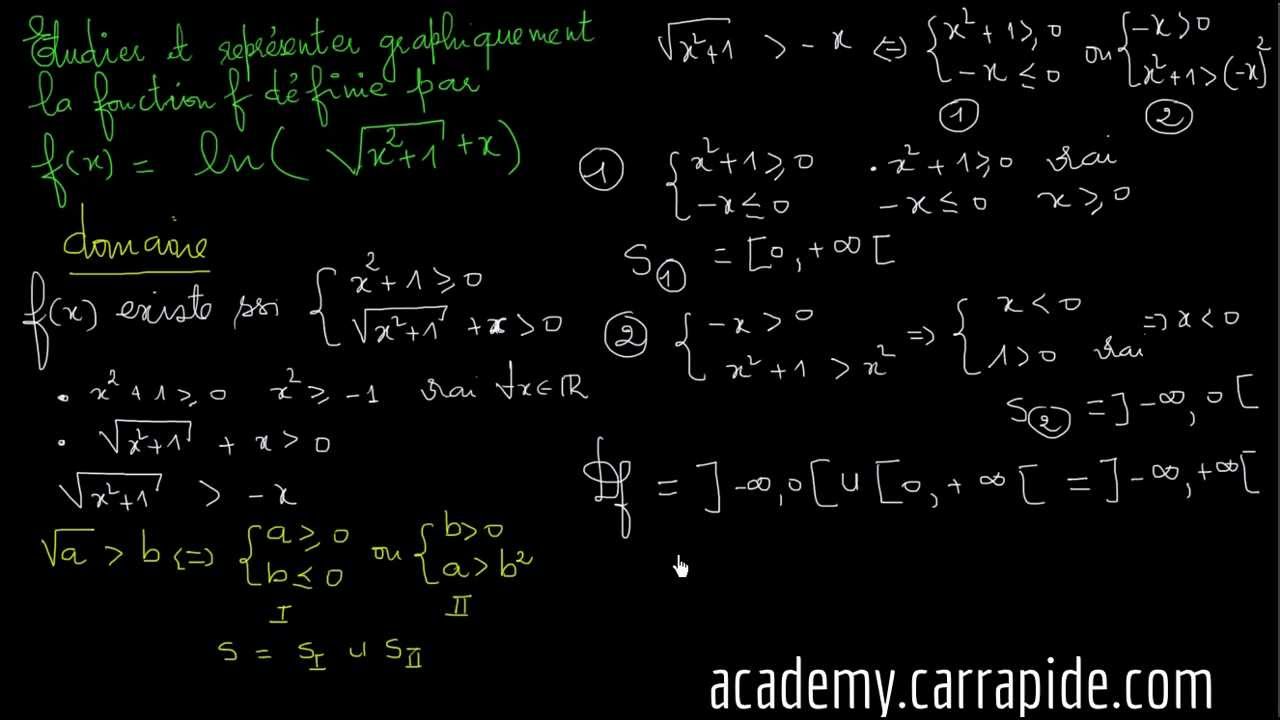 Etudier et représenter graphiquement
la fonction f définie par
f(x) = ln( √(x²+1) + x )
domaine
f(x) existe ssi { x² + 1 ≥ 0
√(x²+1) + x > 0
• x² + 1 ≥ 0 x² ≥ -1 vrai ∀x ∈ ℝ
• √(x²+1) + x > 0
√(x²+1) > -x
√a > b ⇔ { a ≥ 0 ou { b > 0
b ≤ 0 a > b²
I II
S = S_I ∪ S_II
√(x²+1) > -x ⇔ { x² + 1 ≥ 0 ou { -x > 0
-x ≤ 0 x² + 1 > (-x)²
① ②
① { x² + 1 ≥ 0 • x² + 1 ≥ 0 vrai
-x ≤ 0 -x ≤ 0 x ≥ 0
S① = [0, +∞[
② { -x > 0 ⇒ { x < 0 ⇒ x < 0
x² + 1 > x² 1 > 0 vrai
S② = ]-∞, 0[
Df = ]-∞, 0[ ∪ [0, +∞[ = ]-∞, +∞[
academy.carrapide.com